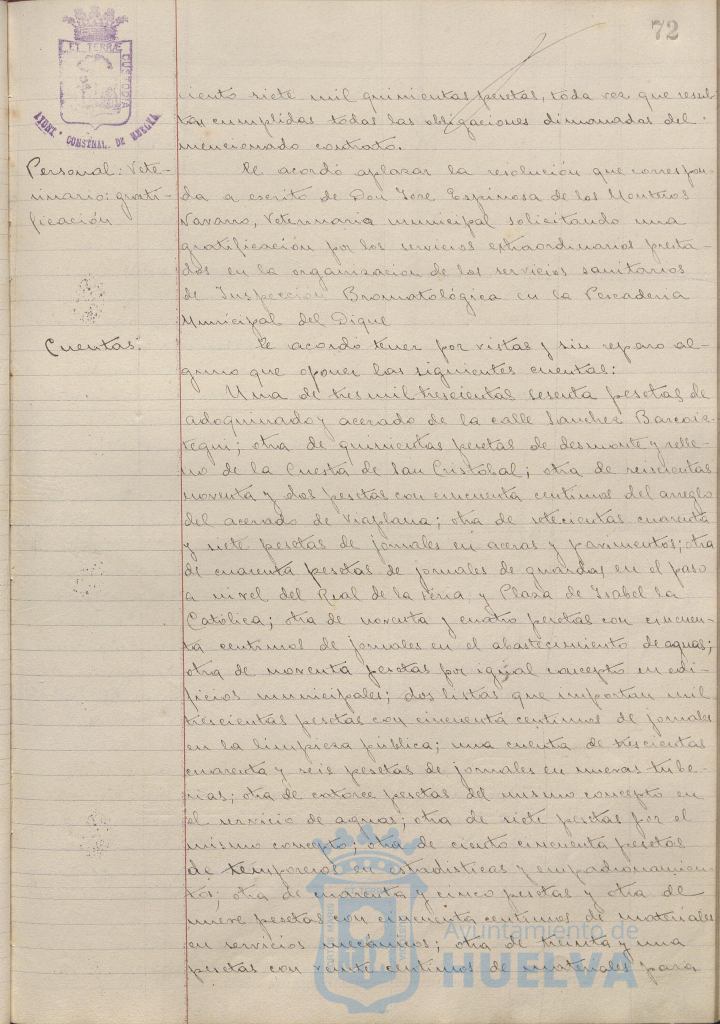 72
ET TERRÆ
CUSTODIA
AYUNT. CONSTNAL. DE HUELVA
ciento siete mil quinientas pesetas, toda vez que resul-
tan cumplidas todas las obligaciones dimanadas del
mencionado contrato.
Personal: Vete-
rinario: grati-
ficación
Se acordó aplazar la resolución que correspon-
da a escrito de Don José Espinosa de los Monteros
Navarro, Veterinario municipal solicitando una
gratificación por los servicios extraordinarios presta-
dos en la organizacion de los servicios sanitarios
de Inspección Bromatológica en la Pescaderia
Municipal del Dique
Cuentas:
Se acordó tener por vistas y sin reparo al-
guno que oponer las siguientes cuentas:
Una de tres mil trescientas sesenta pesetas de
adoquinado y acerado de la calle Sanchez Barcaiz-
tegui; otra de quinientas pesetas de desmonte y relle-
no de la Cuesta de San Cristóbal; otra de seiscientas
noventa y dos pesetas con cincuenta centimos del arreglo
del acerado de Viaplana; otra de setecientas cuarenta
y siete pesetas de jornales en aceras y pavimentos; otra
de cuarenta pesetas de jornales de guardas en el paso
a nivel del Real de la feria y Plaza de Isabel la
Católica; otra de noventa y cuatro pesetas con cincuen-
ta centimos de jornales en el abastecimiento de aguas;
otra de noventa pesetas por igual concepto en edi-
ficios municipales; dos listas que importan mil
trescientas pesetas con cincuenta centimos de jornales
en la limpieza pública; una cuenta de trescientas
cuarenta y seis pesetas de jornales en nuevas tube-
rias; otra de catorce pesetas del mismo concepto en
el servicio de aguas; otra de siete pesetas por el
mismo concepto; otra de ciento cincuenta pesetas
de temporeros en estadisticas y empadronamien-
tos; otra de cuarenta y cinco pesetas y otra de
nueve pesetas con cincuenta centimos de materiales
en servicios mecánicos; otra de treinta y una
pesetas con veinte centimos de materiales para
Ayuntamiento de
HUELVA